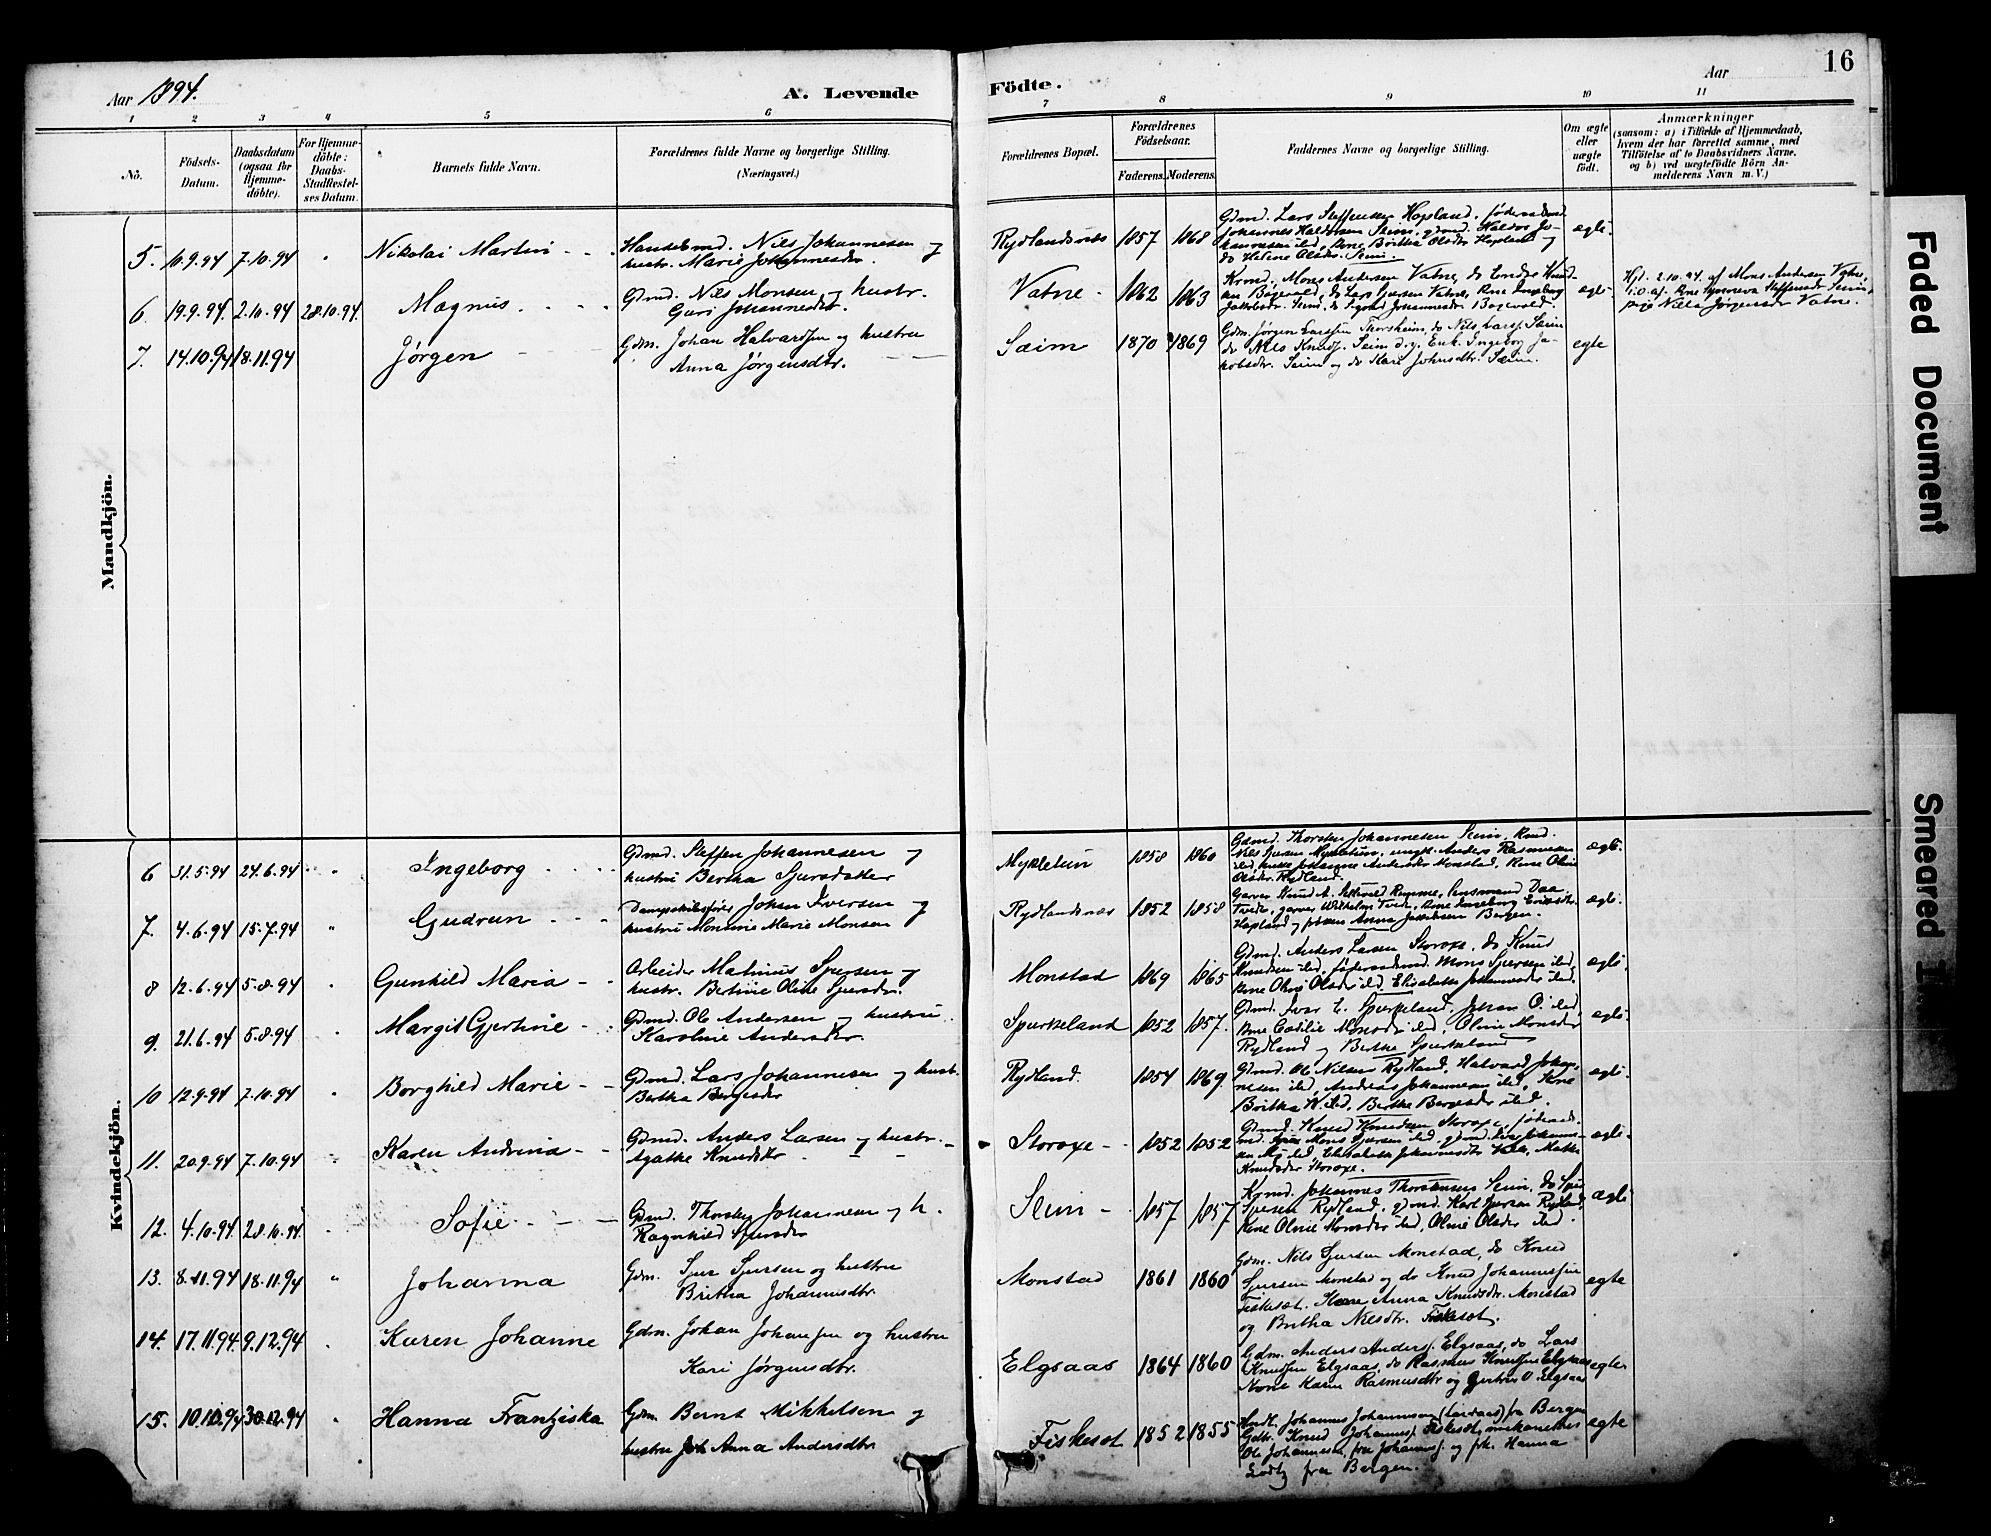 16
Aar 1894.
A. Levende Födte.
Aar
1 2 3 4 5 6 7 8 9 10 11
No.
Födsels-Datum.
Daabsdatum (ogsaa for Hjemme-döbte).
For Hjemme-döbte: Daabs-Stadfæstel-ses Datum.
Barnets fulde Navn.
Forældrenes fulde Navne og borgerlige Stilling.
(Næringsvei.)
Forældrenes Bopæl.
Forældrenes Födselsaar.
Faderens. Moderens.
Faddernes Navne og borgerlige Stilling.
Om ægte eller uægte födt.
Anmærkninger
(saasom: a) i Tilfælde af Hjemmedaab, hvem der har forrettet samme, med Tilföielse af to Daabsvidners Navne, og b) ved uægtefödte Börn Anmelderens Navn m. V.)
Mandkjön.
5. 10.9.94 7.10.94 " Nikolai Martin Handelsmd. Nils Johannesen og hustr. Marie Johannesdr. Rydlandsnæs 1857 1868 Gdmd. Lars Steffensen Hopland, føderaadsmd. Johannes Haldorsen Seim, gdmd. Haldor Johannesen ibd, Kone Britha Olsdr Hopland og do Helene Olsdr. Seim. egte
6. 19.9.94. 2.10.94 28.10.94. Magnus Gdmd. Nils Monsen og hustr. Guri Johannesdr. Vatne 1862 1863 Krmd. Mons Andersen Vatne, do Endre Knudsen Bøgevold, do Lars Sjursen Vatne, Kone Ingeborg Jakobsdr. Seim, do Johannesdr Bøgevold. egte Hjd. 2.10.94. af Mons Andersen Vatne, i O. af Kone Synneva Steffensdr Seim, pige Nilsine Jørgensdr Vatne.
7. 14.10.94 18.11.94 Jørgen Gdm. Johan Halvardsen og hustru Anna Jørgensdtr. Sæim 1870 1869 Gdm. Jørgen Larssen Thorsheim, do Nils Larss. Sæim do Nils Knuds. Seim Enk. Ingeborg Jakobsdtr. Seim og do Kari Johnsdtr. Sæim. egte
Kvindekjön.
6 31.5.94 24.6.94 " Ingeborg Gdmd. Steffen Johannesen og hustru Bertha Sjursdatter Mykletun 1858 1860 Gdmd. Thorsten Johannesen Seim, Krmd. Nils Sjursen Mykletun, ungk. Anders Rasmussen ibd, Johanne Andersdr Monstad, Kone Oline Olsdr. Rydland. egte.
7. 4.6.94 15.7.94 " Gudrun Dampskibsfører Johan Iversen og hustru Monsine Marie Monsen Rydlandsnæs 1852 1858 Garver Knud A. Lensmand Daa Tvedt, garver Wilhelm Tvedt, Kone Ingeborg Eriksdr. Hopland og frøken Anna Jakobsen Bergen. egte.
8 12.6.94 5.8.94 " Gunhild Maria Arbeider Mathias Sjursen og hustr. Bertine Oline Sjursdr. Monstad 1869 1865 Gdmd. Anders Larsen Storoxe, do Knud Knudsen ibd, føderaadsmd. Mons Sjursen ibd, Kone Oline Olsdr ibd, Elisabeth Johannesdr ibd. egte.
9. 21.6.94 5.8.94 " Margit Gjertine Gdmd. Ole Andersen og hustru Karoline Andersdtr. Spurkeland 1852 1857. Gdmd. Ivar L. Spurkeland, Johan O. ibd, Kone Cecilie Monsdr ibd, Oline Monsdr Rydland og Berthe Spurkeland egte.
10 12.9.94 7.10.94 " Borghild Marie Gdmd. Lars Johannesen og hustr. Bertha Børgesdr Rydland. 1854 1869. Gdmd. Ole Nilsen Rydland, Halvard Johannesen ibd, Andreas Johannesen ibd, Kone Britha N. ibd, Berthe Børgesdr ibd. egte.
11. 20.9.94 7.10.94 " Karen Andrina Gdmd. Anders Larsen og hustr. Agathe Knudsdtr Storoxe 1852 1852 Gdmd. Knud Knudsen Storoxe, føderaadsmd. Mons Sjursen ibd, Elisabeth Johannesdr Knudsdr Storoxe. egte.
12. 4.10.94 28.10.94. " Sofie Gdmd. Thorsten Johannesen og h. Ragnhild Sjursdr Seim 1857 1857 Krmd. Johannes Thorstensen Seim, do Sjur Sjursen Rydland, gdmd. Karl Iversen Rydland, Kone Oline Monsdr ibd, Oline Olsdr ibd. egte
13. 8.11.94 18.11.94 " Johanna Gdm. Sjur Sjursen og hustru Britha Johannesdtr. Monstad 1861 1860 Gdm. Nils Sjursen Monstad, do Knud Sjursen Monstad og do Knud Johannessen Fiskeset. Kone Anna Knudsdtr. Monstad og Britha Nilsdtr. Fiskeset. egte
14. 17.11.94. 9.12.94 " Karen Johanne Gdm. Johan Johansen og hustru Kari Jørgensdtr. Elgsaas 1864 1860 Gdm. Anders Anders. Elgsaas, do Lars Knudsen Elgsaas, do Rasmus Knudsen Elgsaas Kone Karen Rasmusdtr og Gjertrud O Elgsaas egte
15. 10.10.94 30.12.94 " Hanna Frantziska Gdm. Bernt Mikkelsen og hustru Joh Anna Andersdtr. Fiskeset 1852 1855 Hndl. Johannes Johannesen fra Bergen Gdbr. Knud Johannes. Fiskeset, Ole Johannesen, fru Johannes. og frk. Hanna fra Bergen. egte
Faded Document
Smeared